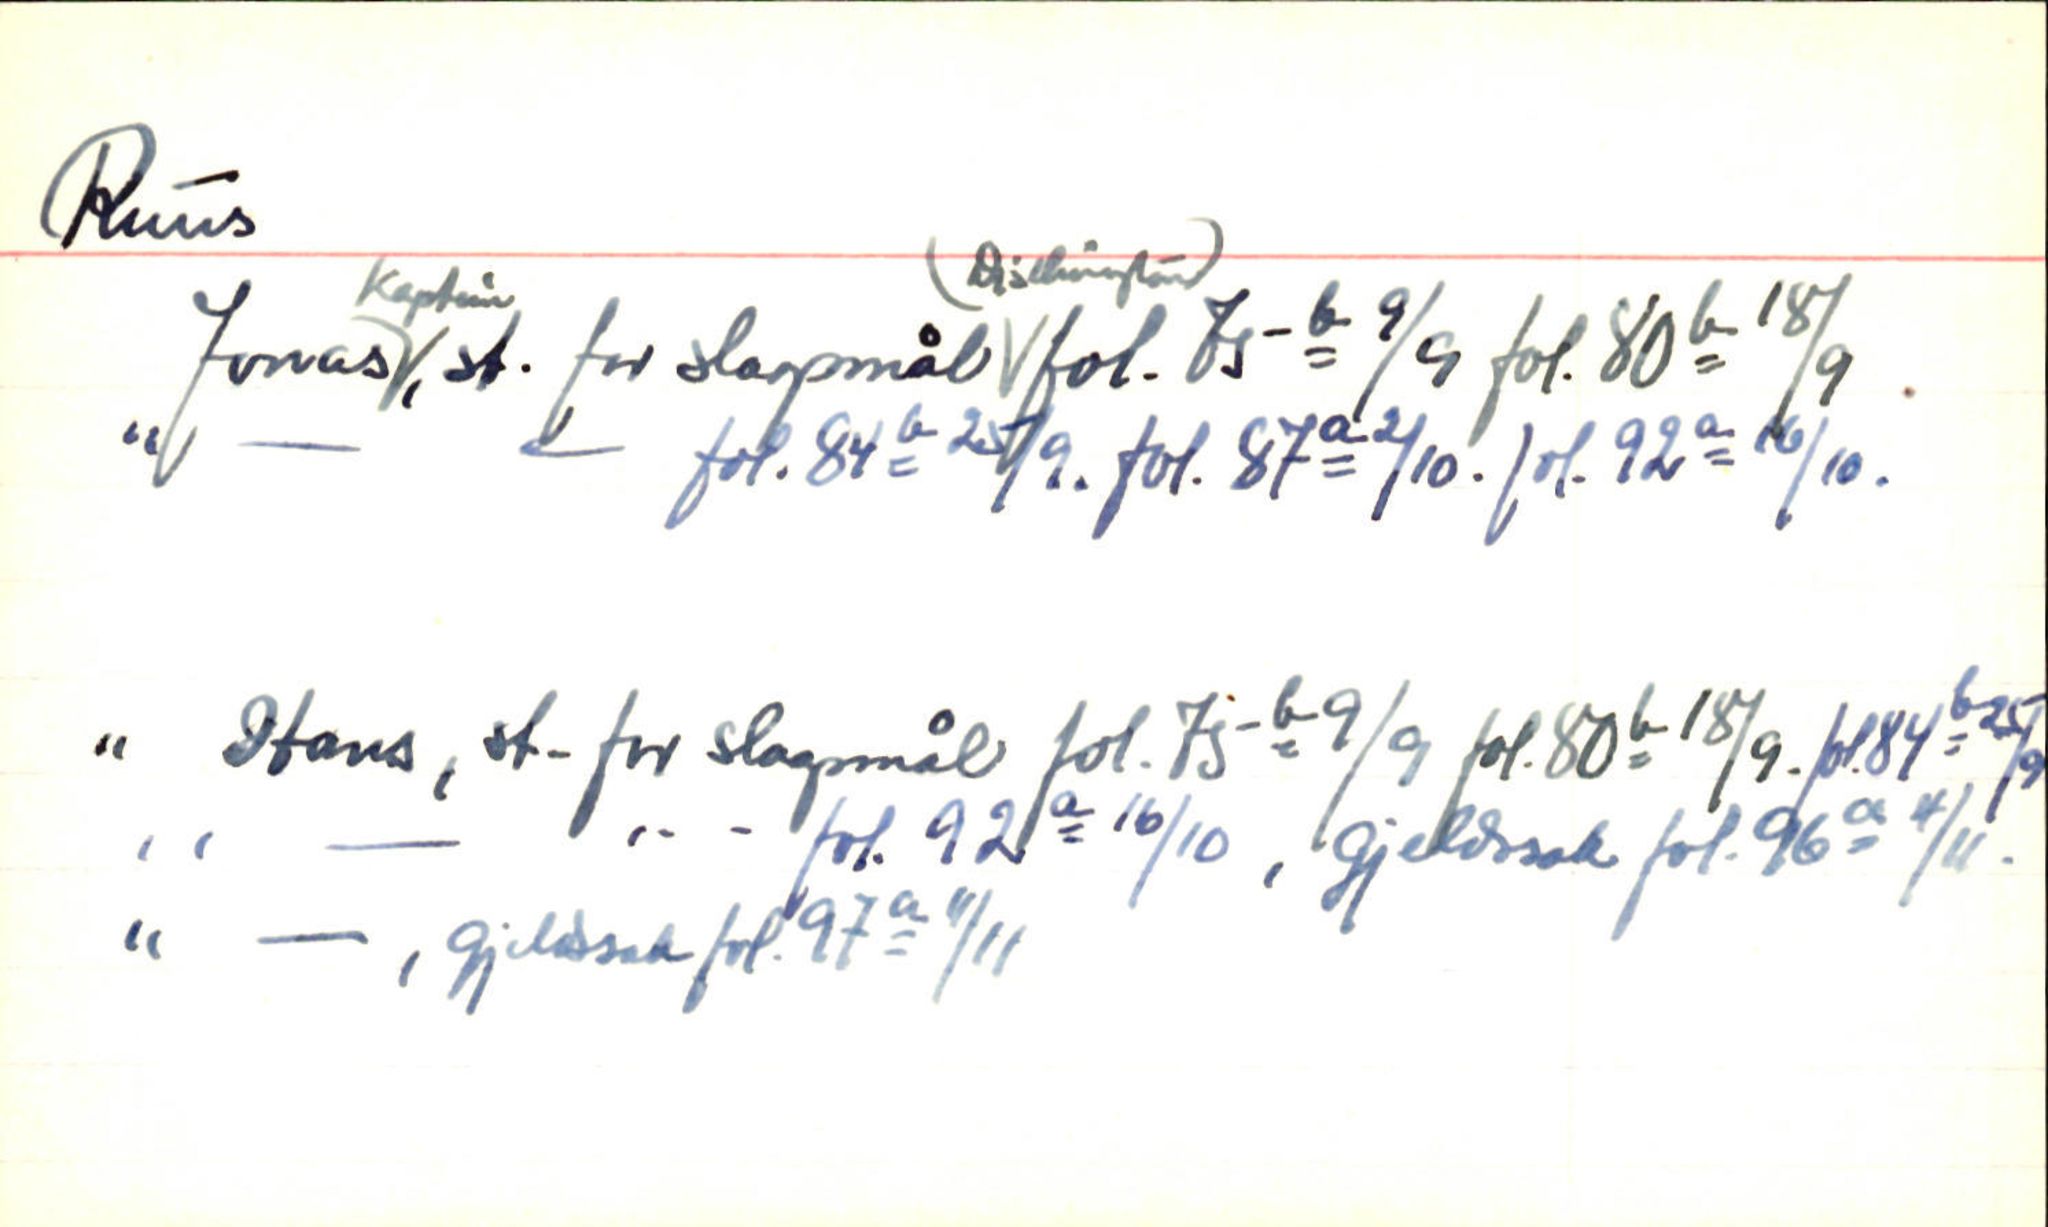 Ruus
Kaptein (Dischington)
Jonas, st. for slagsmål fol. 75b 9/9 fol. 80b 18/9
" — " — fol. 84b 25/9. fol. 87a 2/10. fol. 92a 16/10.
" Hans, st. for slagsmål fol. 75b 9/9 fol. 80b 18/9. fol. 84b 25/9
" — " - - fol. 92a 16/10, Gjeldssak fol. 96a 4/11.
" —, Gjeldssak fol. 97a 11/11